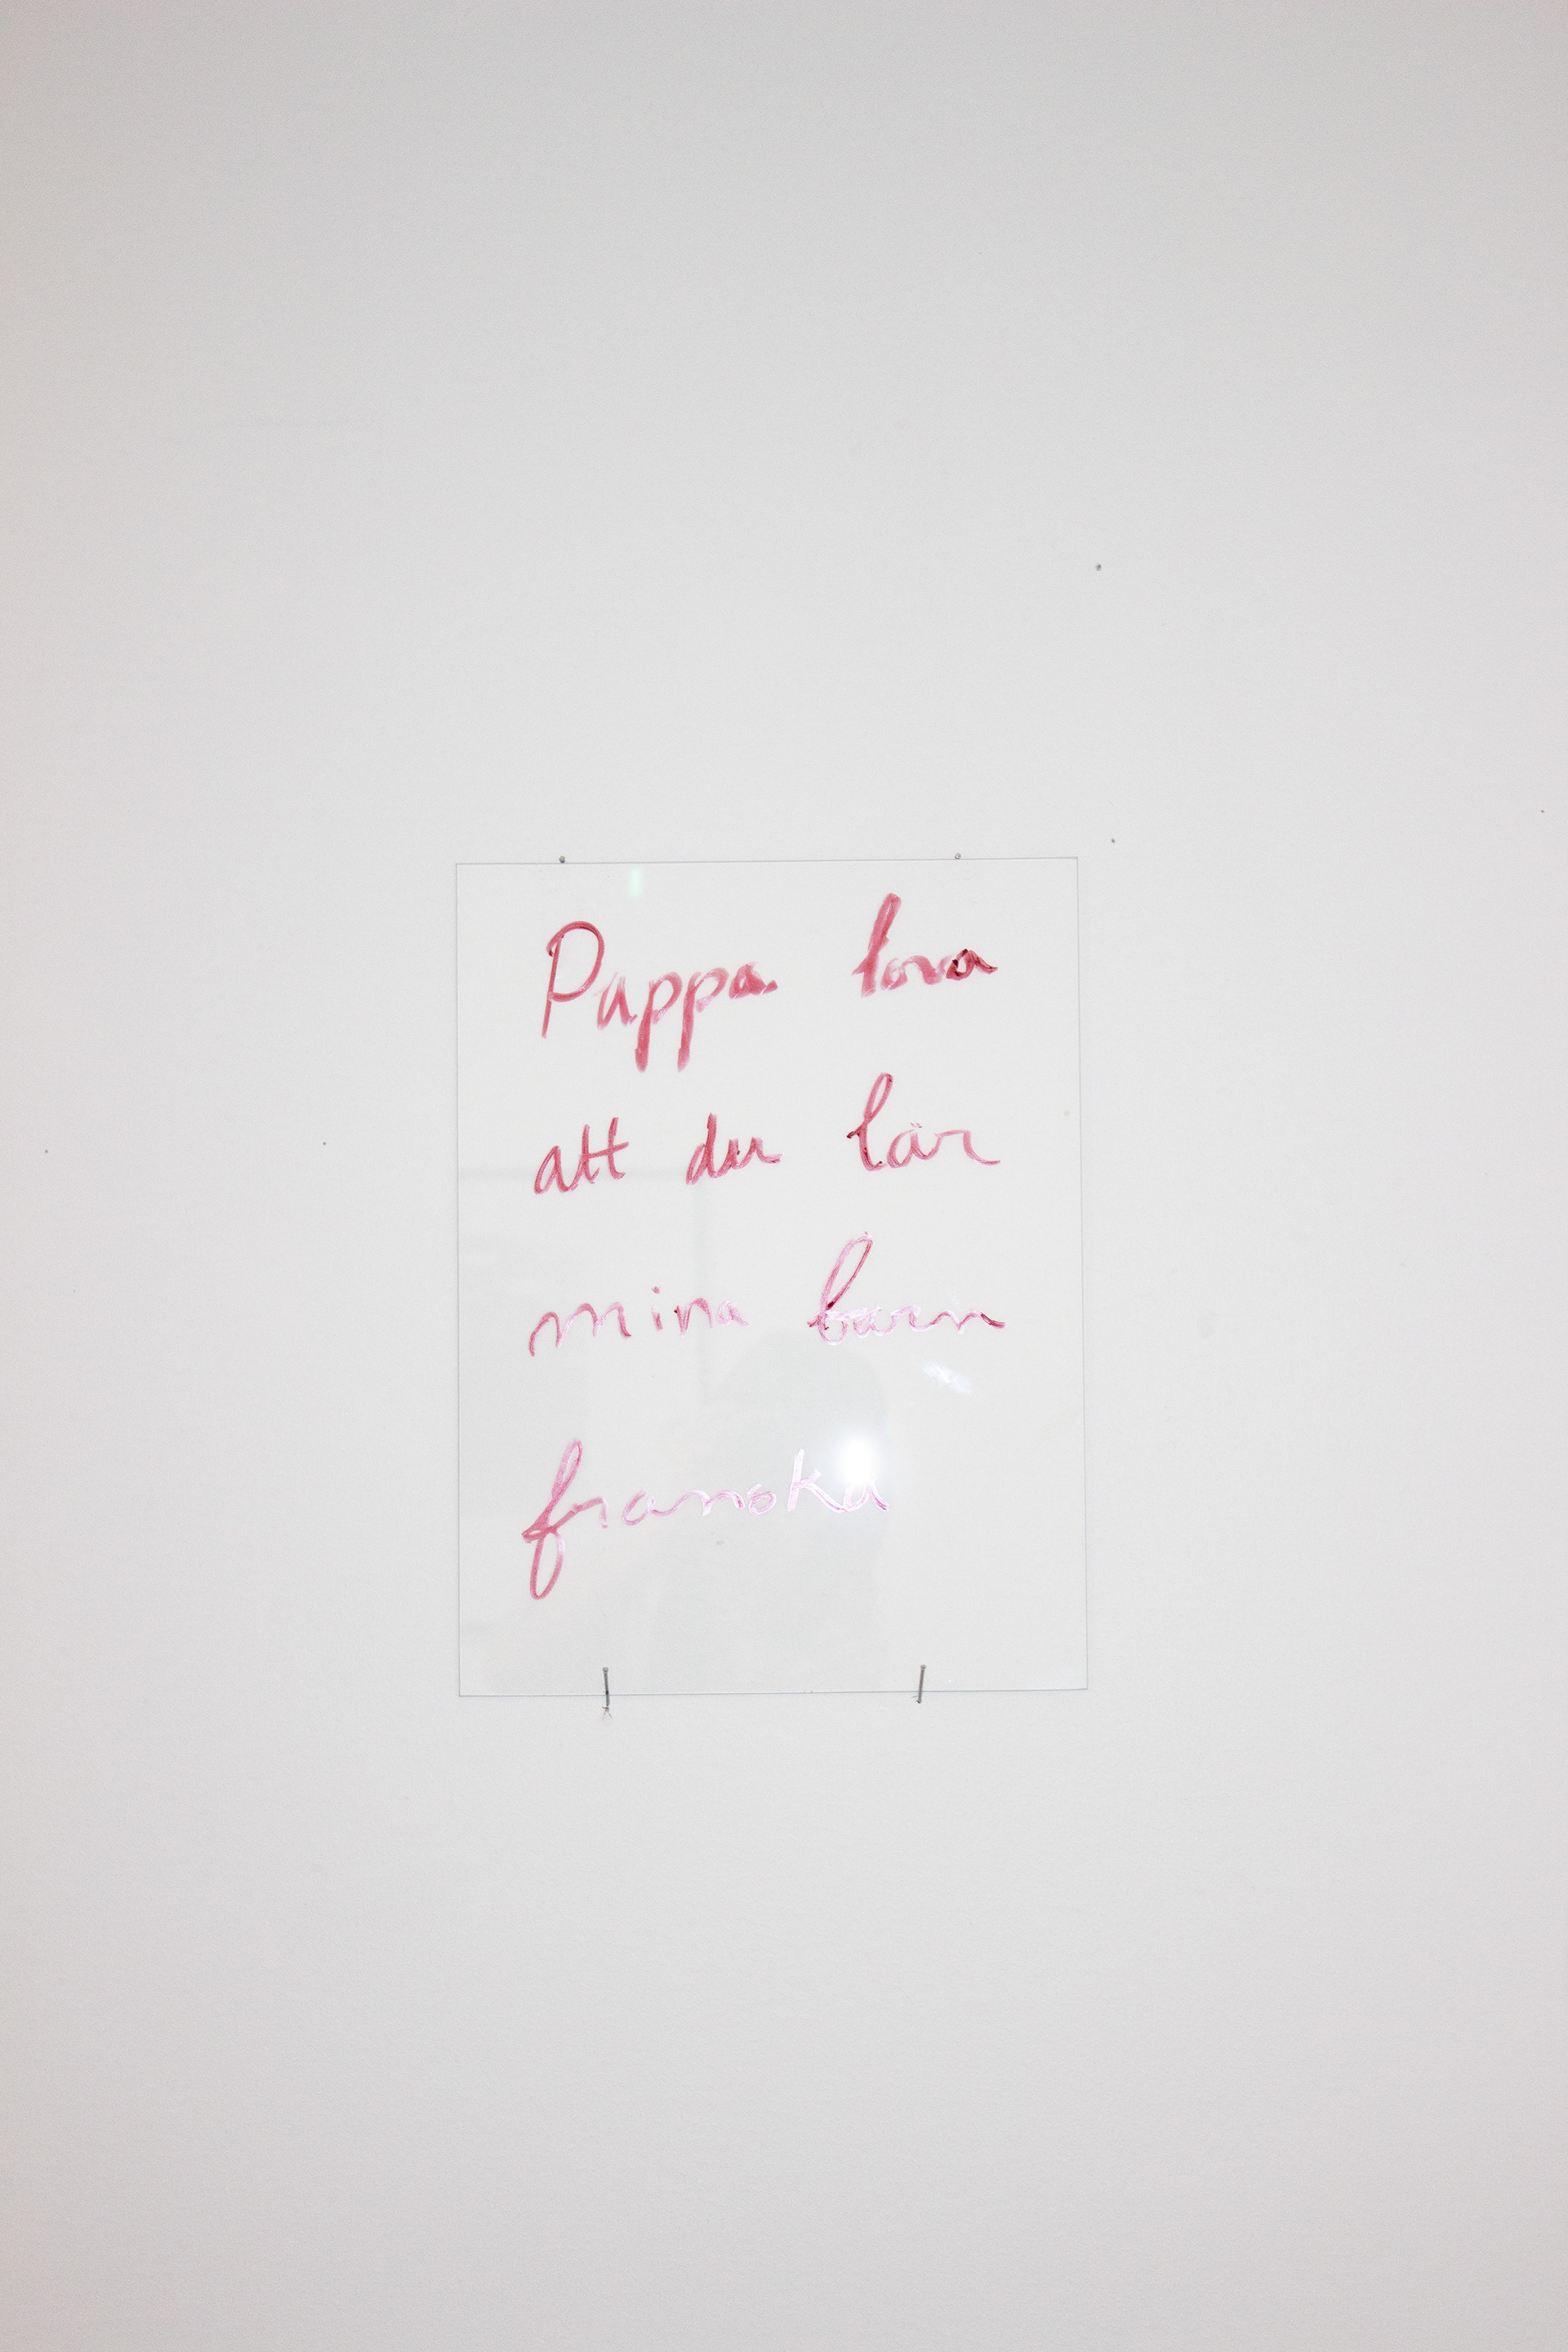 Pappa lova
att du lär
mina barn
franska